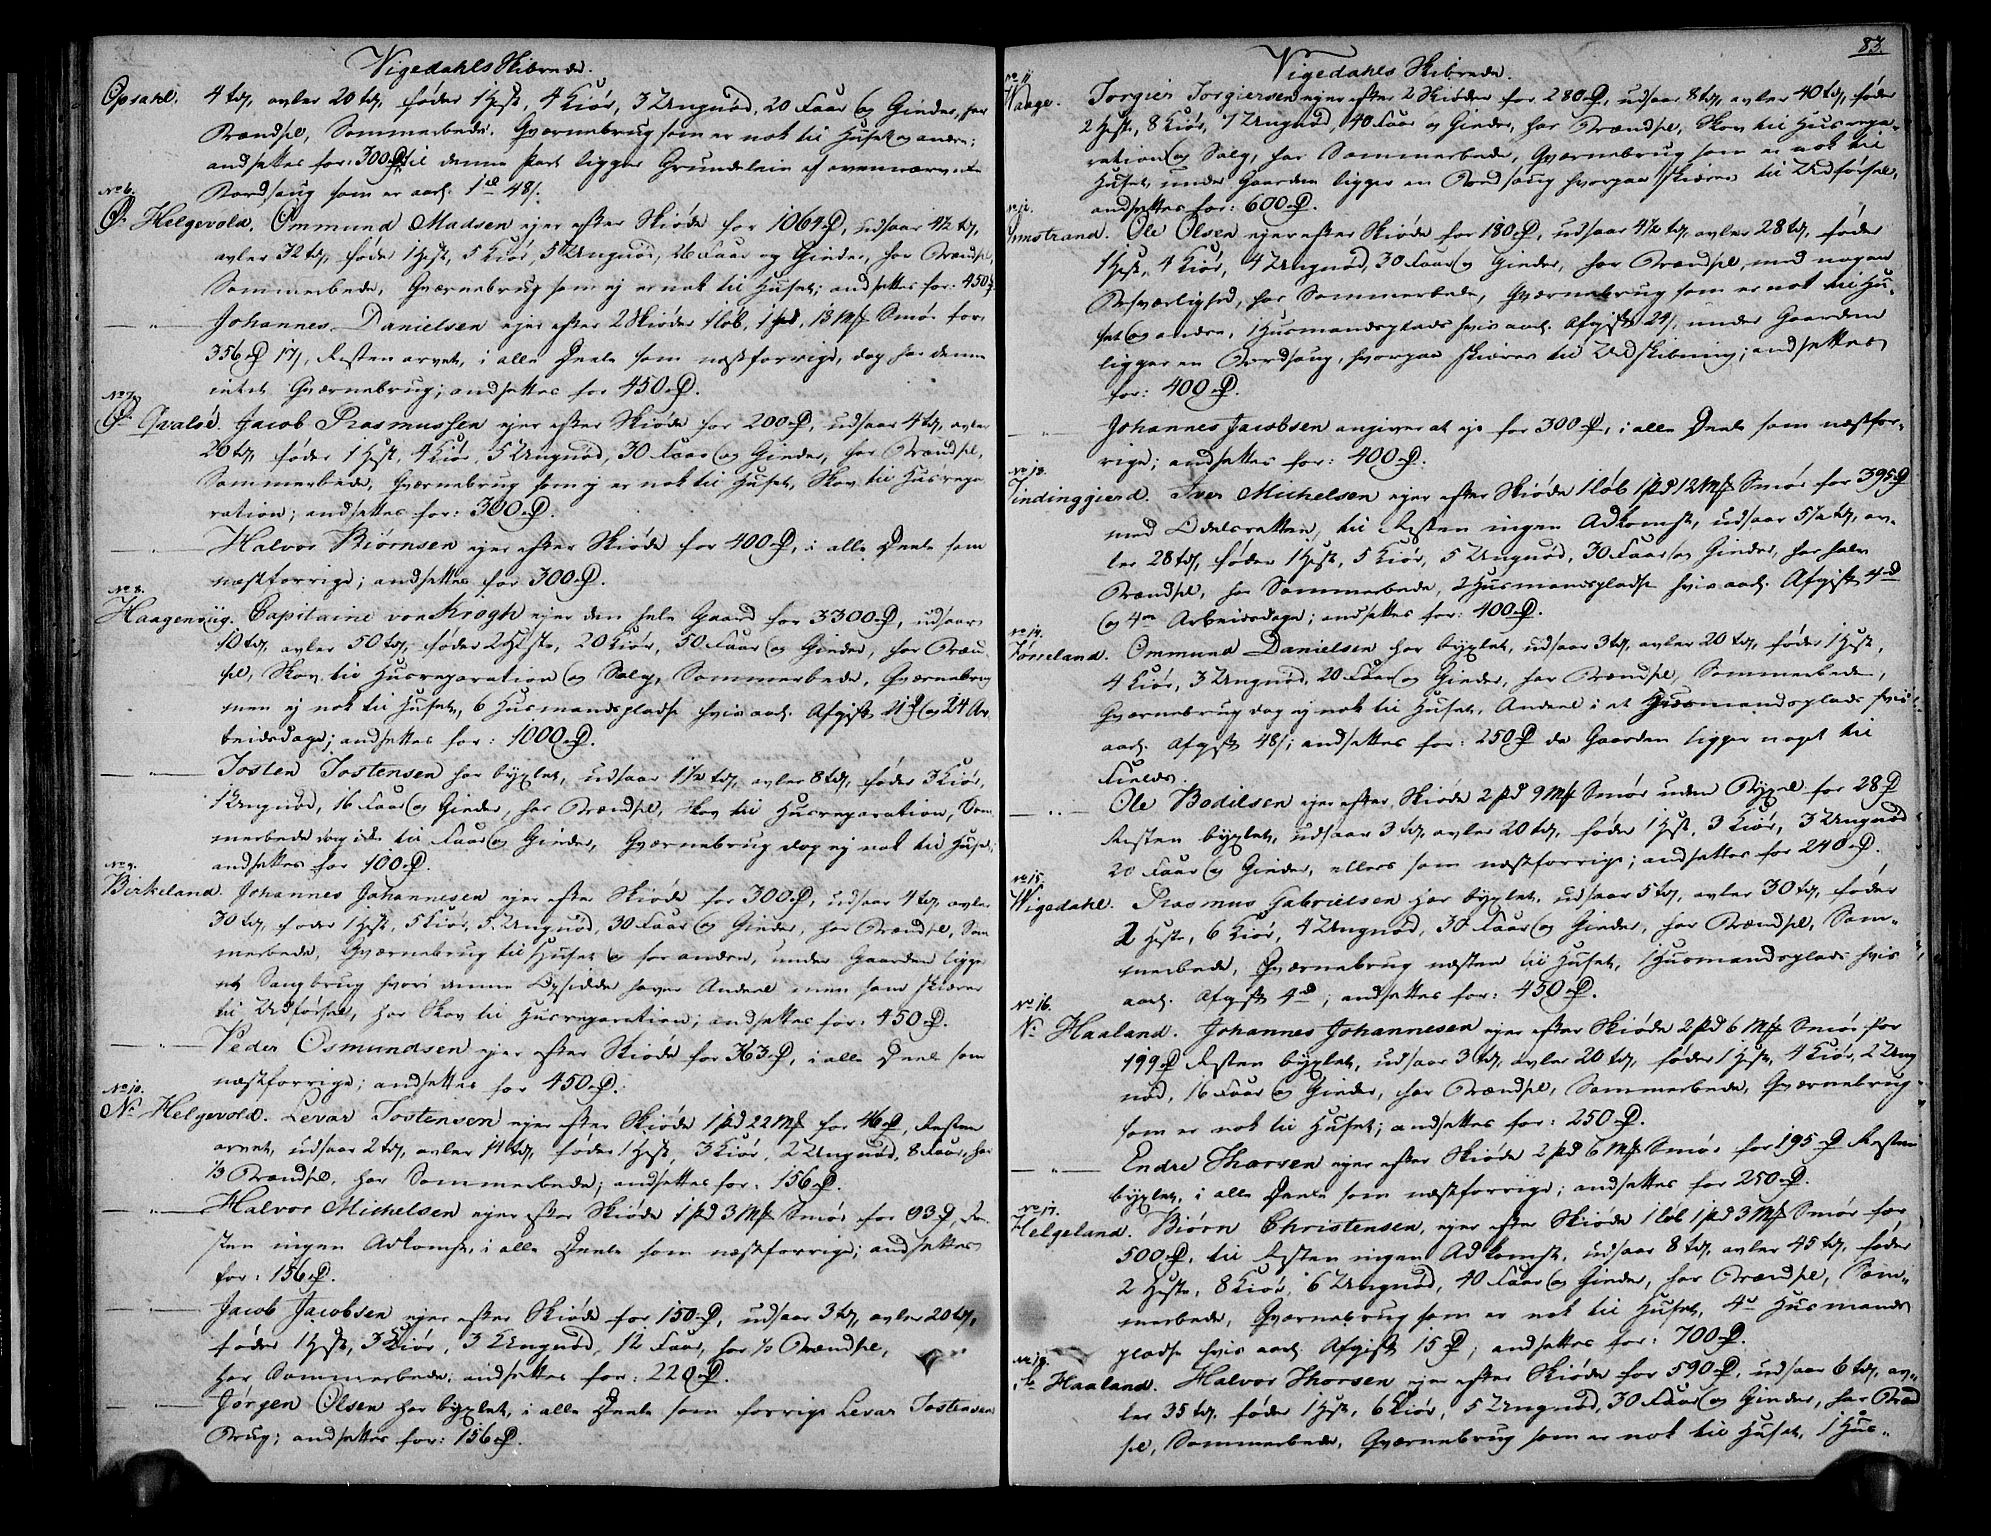 Vigedahls Skibrede.
Opsahl. 4 tdr, avler 20 tdr, føder 1 Hest, 4 Kiør, 3 Ungnød, 20 Faar og Gieder, har
Brændsel, Sommerbede, Qværnebrug som er nok til Huset og andre;
andsættes for: 300 rd. til denne Part ligger Grundeleien af ovennævnte
Bordsaug som er aarl. 1 rd 48 s.
No 6.
Ø. Helgevold. Ommund Madsen ejer efter Skiøde for 1064 rd, udsaar 4½ tdr,
avler 32 tdr, føder 1 Hest, 5 Kiør, 5 Ungnød, 26 Faar og Gieder, har Brændsel,
Sommerbede, Qværnebrug som ej er nok til Huset; andsættes for: 450 rd.
— " — Johannes Danielsen ejer efter 2 Skiøder 1 løb, 1 pd, 13 Mk Smør for
356 rd 17 s, Resten arvet, i alle Deele som næstforrige, dog har denne
intet Qværnebrug; andsættes for 450 rd.
No 7.
Ø. Qvaløe. Jacob Rasmussen ejer efter Skiøde for 200 rd, udsaar 4 tdr, avler
20 tdr, føder 1 Hest, 4 Kiør, 5 Ungnød, 30 Faar og Gieder, har Brændsel,
Sommerbede, Qværnebrug som ej er nok til Huset, Skov til Husrepa-
ration; andsættes for: 300 rd.
— " — Halvor Biørnsen ejer efter Skiøde for 400 rd, i alle Deele som
næstforrige; andsættes for 300 rd.
No 8.
Haagenviig. Capitaine von Krogh ejer den hele Gaard for 3300 rd, udsaar
10 tdr, avler 50 tdr, føder 2 Heste, 20 Kiør, 50 Faar og Gieder, har Bræn-
sel, Skov til Husreparation og Salg, Sommerbede, Qværnebrug
men ej nok til Huset, 6 Husmandspladse hvis aarl. Afgift 11 rd og 24 Ar-
beidsdage; andsættes for: 1000 rd.
— " — Tosten Tostensen har byxlet, udsaar 1½ tdr, avler 8 tdr, føder 3 Kiør,
1 Ungnød, 16 Faar og Gieder, har Brændsel, Skov til Husreparation, Som-
merbede dog ikke til Faar og Gieder, Qværnebrug dog ej nok til Huset;
andsættes for 100 rd.
No 9.
Birkeland. Johannes Johannesen ejer efter Skiøde for 300 rd, udsaar 4 tdr, avler
30 tdr, føder 1 Hest, 5 Kiør, 5 Ungnød, 30 Faar og Gieder, har Brændsel, Som-
merbede, Qværnebrug til Huset og for andre, under Gaarden ligger
et Saugbrug hvori denne Opsidder haver Andeel men som skiærer
til Udførsel, har Skov til Husreparation; andsættes for: 450 rd.
— " — Peder Osmundsen ejer efter Skiøde for 363 rd, i alle Deele som
næstforrige; andsættes for 450 rd.
No 10.
N. Helgevold. Levar Tostensen ejer efter Skiøde 1 pd 22 Mk for 46 rd, Resten
arvet, udsaar 2 tdr, avler 14 tdr, føder 1 Hest, 3 Kiør, 2 Ungnød, 8 Faar, har
⅓ Brændsel, har Sommerbede; andsættes for: 156 rd.
— " — Halvor Michelsen ejer efter Skiøde 1 pd 3 Mk Smør for 93 rd, Re-
sten ingen Adkomst, i alle Deele som næstforrige; andsættes
for: 156 rd.
— " — Jacob Jacobsen ejer efter Skiøde for 150 rd, udsaar 3 tdr, avler 20 tdr,
føder 1 Hest, 3 Kiør, 3 Ungnød, 12 Faar, har ⅓ Brændsel,
har Sommerbede; andsættes for: 220 rd.
— " — Jørgen Olsen har byxlet, i alle Deele som forrige Levar Tostensens
Brug; andsættes for: 156 rd.
83.
Vigedahls Skibrede.
No 11.
Haage. Torgier Torgiersen ejer efter 2 Skiøder for 280 rd, udsaar 8 tdr, avler 40 tdr, føder
2 Heste, 8 Kiør, 7 Ungnød, 40 Faar og Gieder, har Brændsel, Skov til Husrepa-
ration og Salg, har Sommerbede, Qværnebrug som er nok til
Huset, under Gaarden ligger en Bordsaug hvorpaa skiæres til Udførsel,
andsættes for: 600 rd.
No 12.
Imstrand. Ole Olsen ejer efter Skiøde for 180 rd, udsaar 4½ tdr, avler 28 tdr, føder
1 Hest, 4 Kiør, 4 Ungnød, 30 Faar og Gieder, har Brændsel, med nogen
Besværlighed, har Sommerbede, Qværnebrug som er nok til Hu-
set og andre, 1 Husmandsplads hvis aarl. Afgift 24 s, under Gaarden
ligger en Bordsaug, hvorpaa skiæres til Udskibning; andsættes
for: 400 rd.
— " — Johannes Jacobsen angiver at eje for 300 rd, i alle Deele som næstfor-
rige; andsættes for: 400 rd.
No 13.
Findinggierd. Iver Michelsen ejer efter Skiøde 1 løb 1 pd 12 Mk Smør for 395 rd
med Odelsretten, til Resten ingen Adkomst, udsaar 5½ tdr, av-
ler 28 tdr, føder 1 Hest, 5 Kiør, 5 Ungnød, 30 Faar og Gieder, har halv
Brændsel, har Sommerbede, 2 Husmandspladse hvis aarl. Afgift 4 rd
og 4re Arbeidsdage; andsættes for: 400 rd.
No 14.
Førreland. Ommund Danielsen har byxlet, udsaar 3 tdr, avler 20 tdr, føder 1 Hest,
4 Kiør, 3 Ungnød, 20 Faar og Gieder, har Brændsel, Sommerbede,
Qværnebrug dog ej nok til Huset, Andeel i et Husmandsplads hvis
aarl. Afgift 48 s; andsættes for: 250 rd da Gaarden ligger noget til
Fields.
— " — Ole Bodilsen ejer efter Skiøde 2 pd 9 Mk Smør uden Byxel for 28 rd
Resten byxlet, udsaar 3 tdr, avler 20 tdr, føder 1 Hest, 3 Kiør, 3 Ungnød
20 Faar og Gieder, ellers som næstforrige; andsættes for 240 rd.
No 15.
Wigedahl. Rasmus Gabrielsen har byxlet, udsaar 5 tdr, avler 30 tdr, føder
2 Heste, 6 Kiør, 4 Ungnød, 30 Faar og Gieder, har Brændsel, Som-
merbede, Qværnebrug næsten til Huset, 1 Husmandsplads hvis
aarl. Afgift 4 rd; andsættes for: 450 rd.
No 16.
N. Haaland. Johannes Johannesen ejer efter Skiøde 2 pd 6 Mk Smør for
199 rd Resten byxlet, udsaar 3 tdr, avler 20 tdr, føder 1 Hest, 4 Kiør, 2 Ung-
nød, 16 Faar og Gieder, har Brændsel, Sommerbede, Qværnebrug
som er nok til Huset; andsættes for: 250 rd.
— " — Endre Thorsen ejer efter Skiøde 2 pd 6 Mk Smør for 195 rd Resten
byxlet, i alle Deele som næstforrige; andsættes for 250 rd.
No 17.
Helgeland. Biørn Christensen, ejer efter Skiøde 1 løb 1 pd 3 Mk Smør for
500 rd, til Resten ingen Adkomst, udsaar 8 tdr, avler 45 tdr, føder
2 Heste, 8 Kiør, 6 Ungnød, 40 Faar og Gieder, har Brændsel, Som-
merbede, Qværnebrug som er nok til Huset, 4re Husmands-
pladse hvis aarl. Afgift 15 rd; andsættes for: 700 rd.
No 18.
Haaland. Halvor Thorsen ejer efter Skiøde for 590 rd, udsaar 6 tdr, av-
ler 35 tdr, føder 1 Hest, 6 Kiør, 5 Ungnød, 30 Faar og Gieder, har Bræn-
sel, Sommerbede, Qværnebrug som er nok til Huset, 1 Hus-